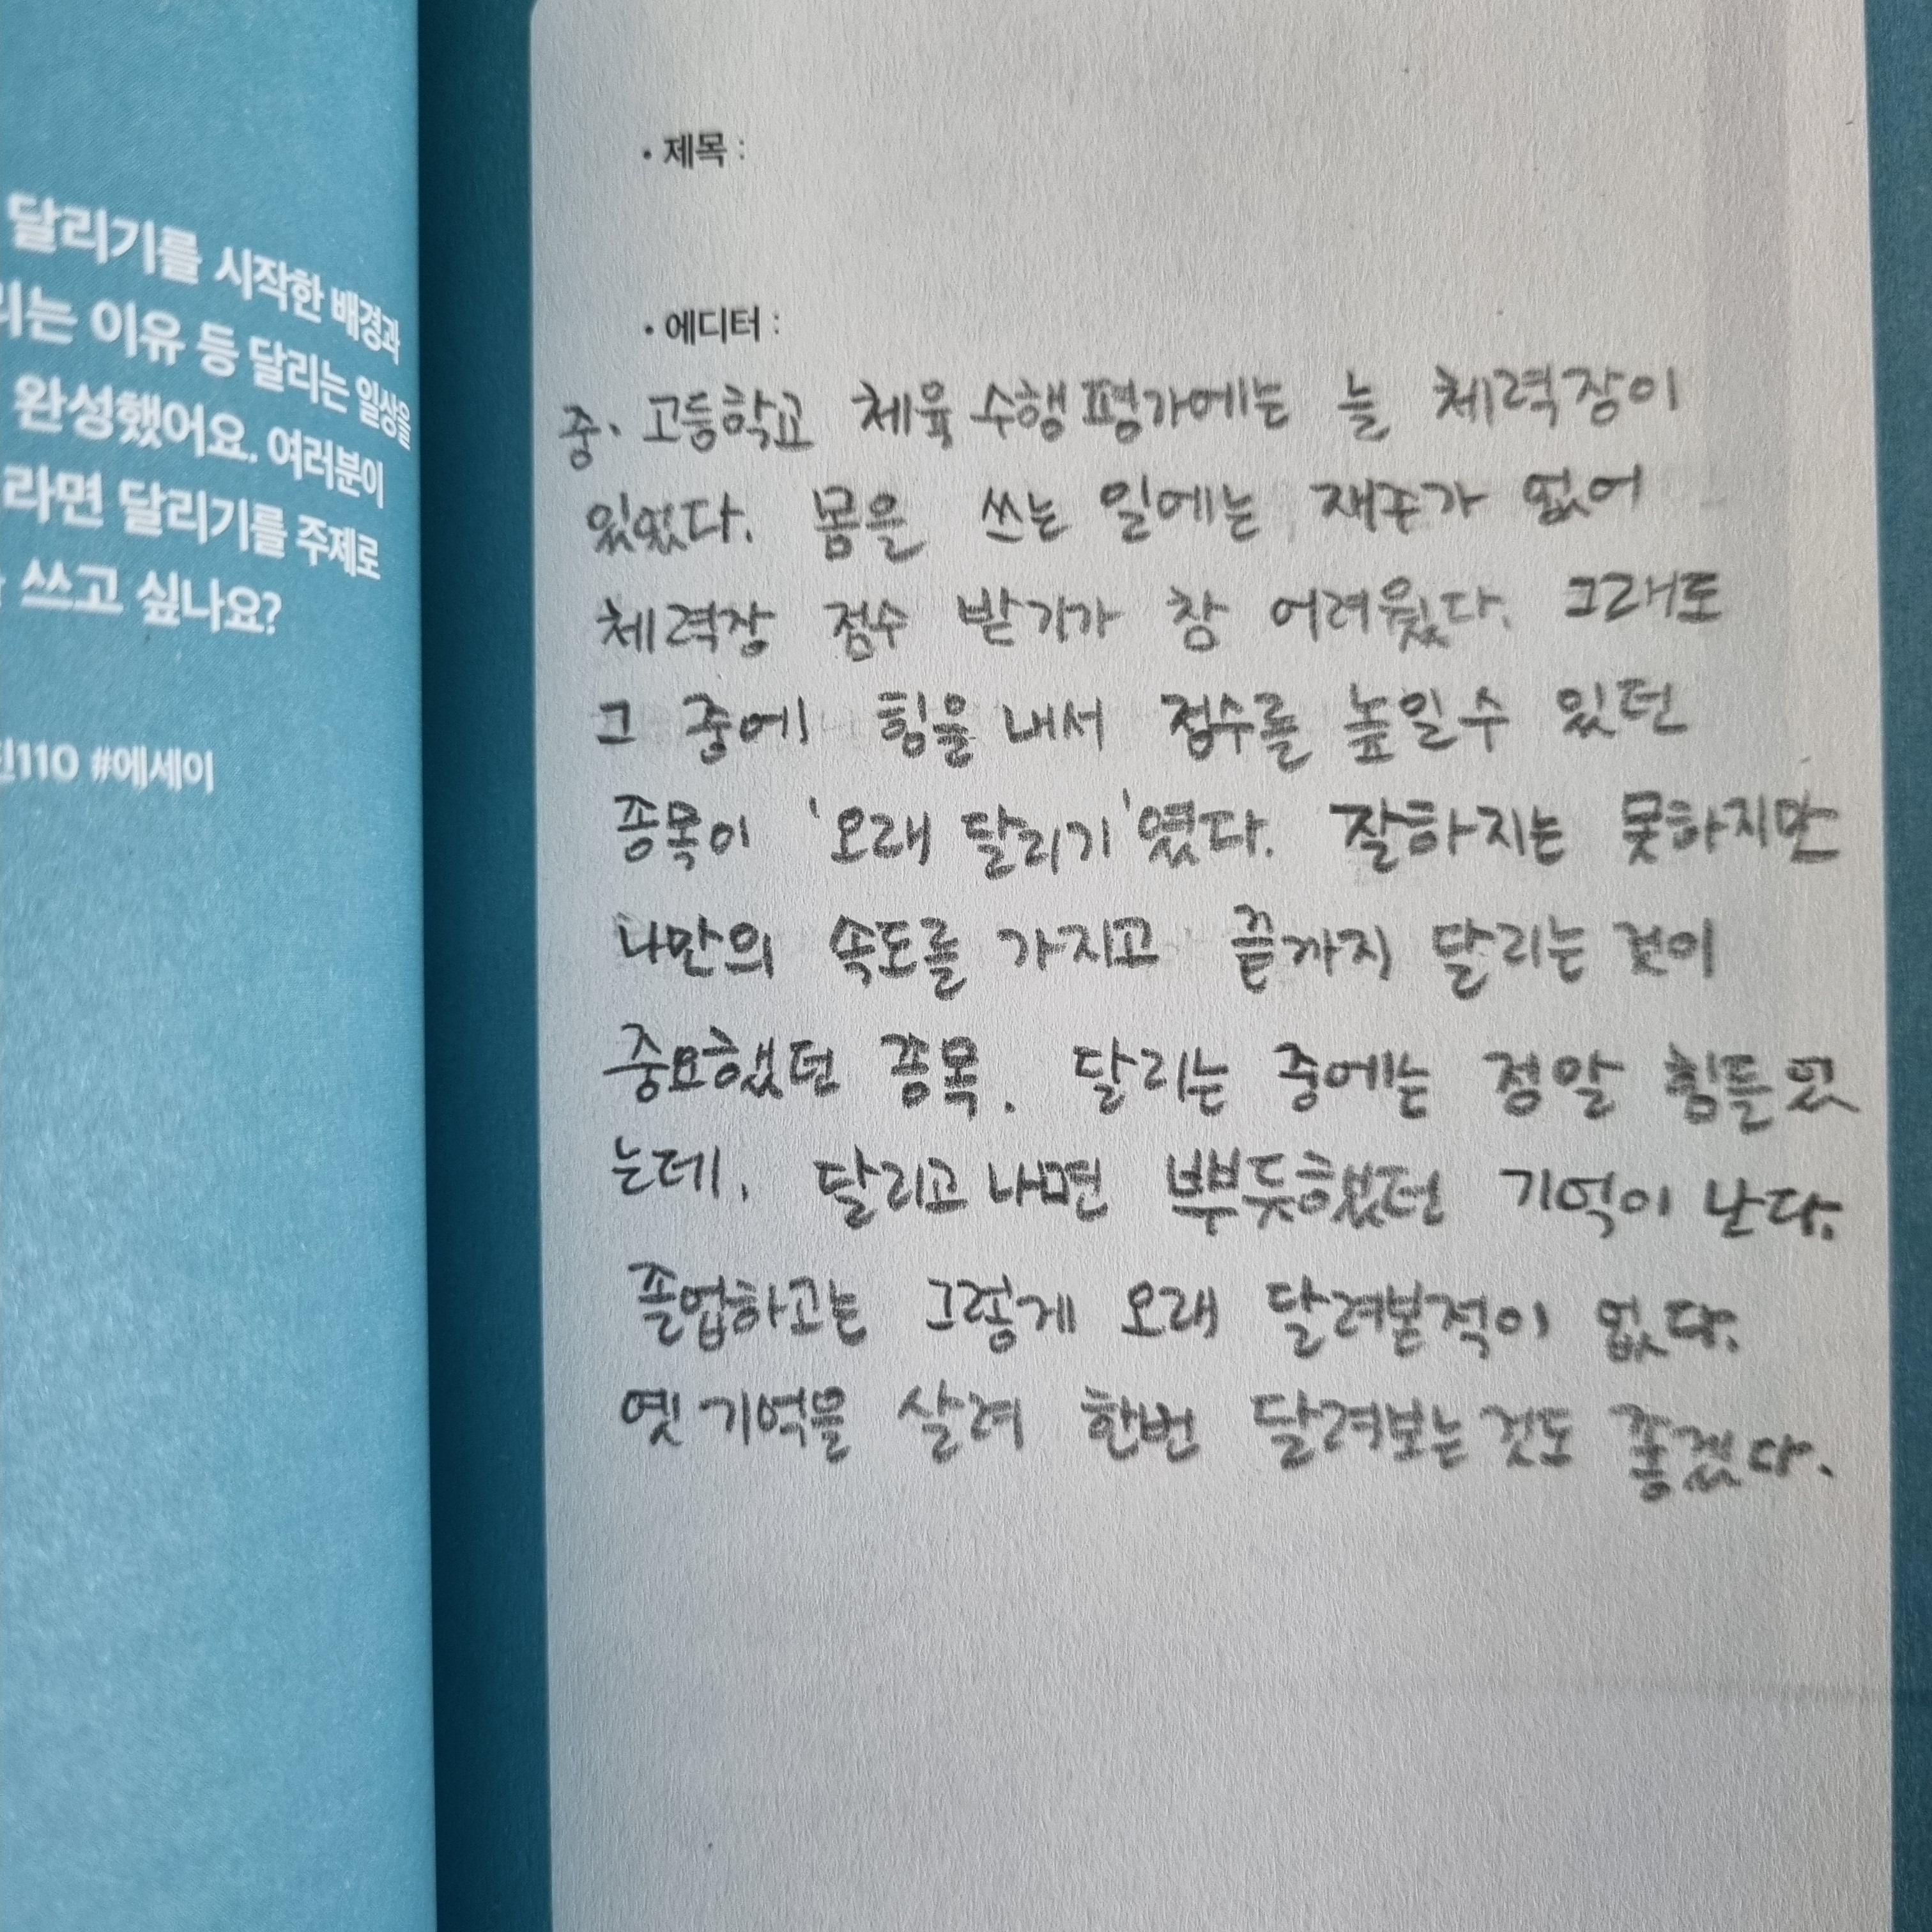 달리기를 시작한 배경과
리는 이유 등 달리는 일상을
완성했어요. 여러분이
라면 달리기를 주제로
쓰고 싶나요?
110 #에세이
• 제목 :
• 에디터 :
중·고등학교 체육 수행평가에는 늘 체력장이
있었다. 몸을 쓰는 일에는 재주가 없어
체력장 점수 받기가 참 어려웠다. 그래도
그 중에 힘을 내서 점수를 높일 수 있던
종목이 '오래 달리기'였다. 잘하지는 못하지만
나만의 속도를 가지고 끝까지 달리는 것이
중요했던 종목. 달리는 중에는 정말 힘들었
는데, 달리고 나면 뿌듯했던 기억이 난다.
졸업하고는 그렇게 오래 달려본적이 없다.
옛 기억을 살려 한번 달려보는 것도 좋겠다.